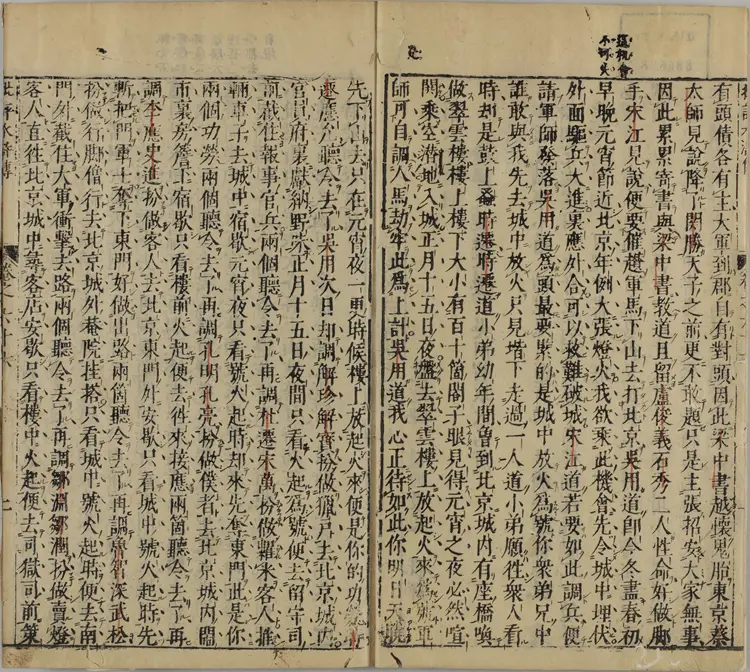 這机會
不可失
有頭債各有主大軍到郡自有對頭因此梁中書越懷鬼胎東京蔡
太師見說降了關勝天子之前更不敢題只是主張招安大家無事
因此累累寄書與梁中書教道且留盧俊義石秀二人性命好做脚
手宋江見說便要催趲軍馬下山去打北京吳用道即今冬盡春初
早晚元宵節近北京年例大張燈火我欲乘此機會先令城中埋伏
外面驅兵大進裏應外合可以救難破城宋江道若要如此調兵便
請軍師發落吳用道為頭最要累的是城中放火為號你衆弟兄中
誰敢與我先去城中放火只見堦下走過一人道小弟願徃衆人看
時却是鼓上蚤時遷時遷道小弟幼年間曾到北京城內有座樓喚
做翠雲樓樓上樓下大小有百十箇閣子眼見得元宵之夜必然喧
鬧乘空潜地入城正月十五日夜盤去翠雲樓上放起火來為號軍
師可自調人馬劫牢此為上計吳用道我心正待如此你明日天曉
先下山去只在元宵夜一更時候樓上放起火來便是你的功勞
時遷應允聽令去了吳用次日却調解珍解寶扮做獵戶去北京城內
官員府裏獻納野味正月十五日夜間只看火起為號便去留守司
前截住報事官兵兩個聽令去了再調杜遷宋萬扮做糶米客人推
輛車子去城中宿歇元宵夜只看號火起時却來先奪東門此是你
兩個功勞兩個聽令去了再調孔明孔亮扮做僕者去北京城內鬧
市裏房簷下宿歇只看樓前火起便去徃來接應兩箇聽令去了再
調李應史進扮做客人去北京東門外安歇只看城中號火起時先
斬把門軍士奪下東門好做出路兩箇聽令去了再調魯智深武松
扮做行脚僧行去北京城外菴院挂搭只看城中號火起時便去南
門外截住大軍衝擊去路兩個聽令去了再調鄒淵鄒潤扮做賣燈
客人直徃北京城中尋客店安歇只看樓中火起便去司獄司前策